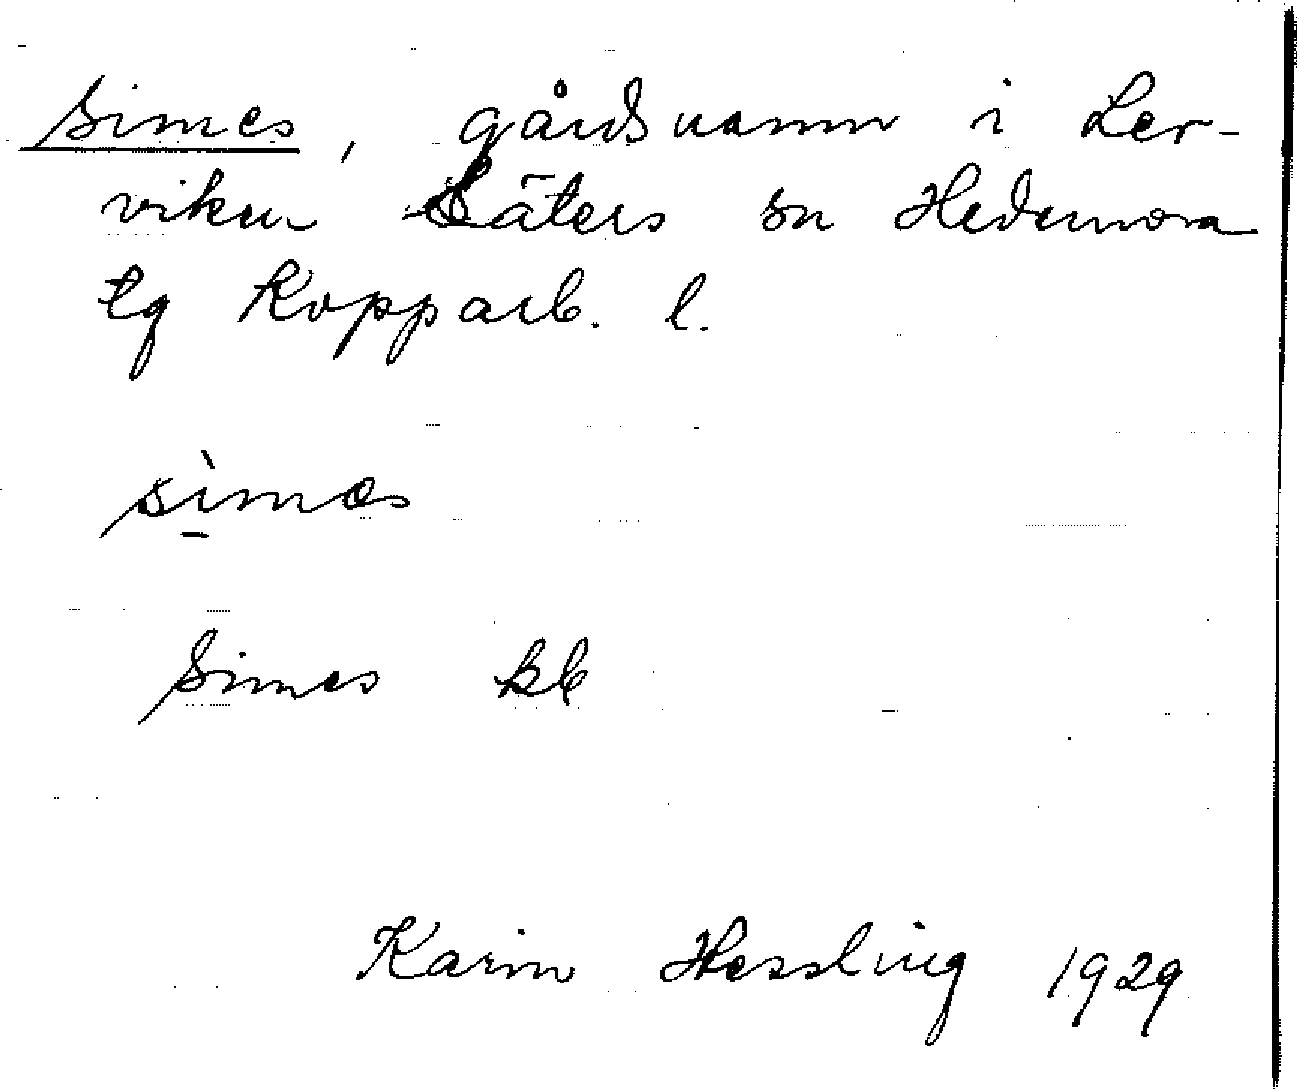 Simes, gårdsnamn i Ler-
viken Säters sn Hedemora
tg Kopparb. l.
sìmæs
Simes kb
Karin Hessling 1929